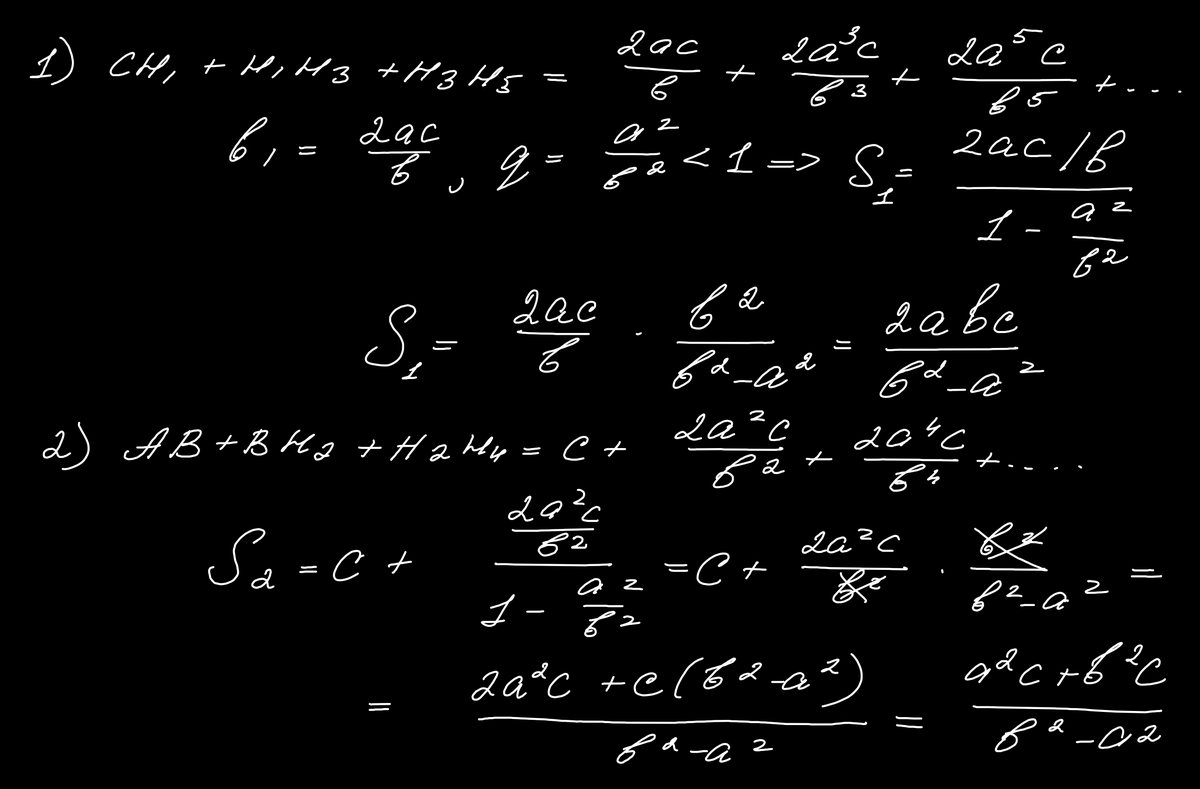 1) CH₁ + H₁H₃ + H₃H₅ = 2ac/b + 2a³c/b³ + 2a⁵c/b⁵ + ...
b₁ = 2ac/b, q = a²/b² < 1 => S₁ = (2ac/b)/(1 - a²/b²)
S₁ = 2ac/b · b²/(b²-a²) = 2abc/(b²-a²)
2) AB + BH₂ + H₂H₄ = c + 2a²c/b² + 2a⁴c/b⁴ + ....
S₂ = c + (2a²c/b²)/(1 - a²/b²) = c + 2a²c/b² · b²/(b²-a²) =
= (2a²c + c(b²-a²))/(b²-a²) = (a²c+b²c)/(b²-a²)